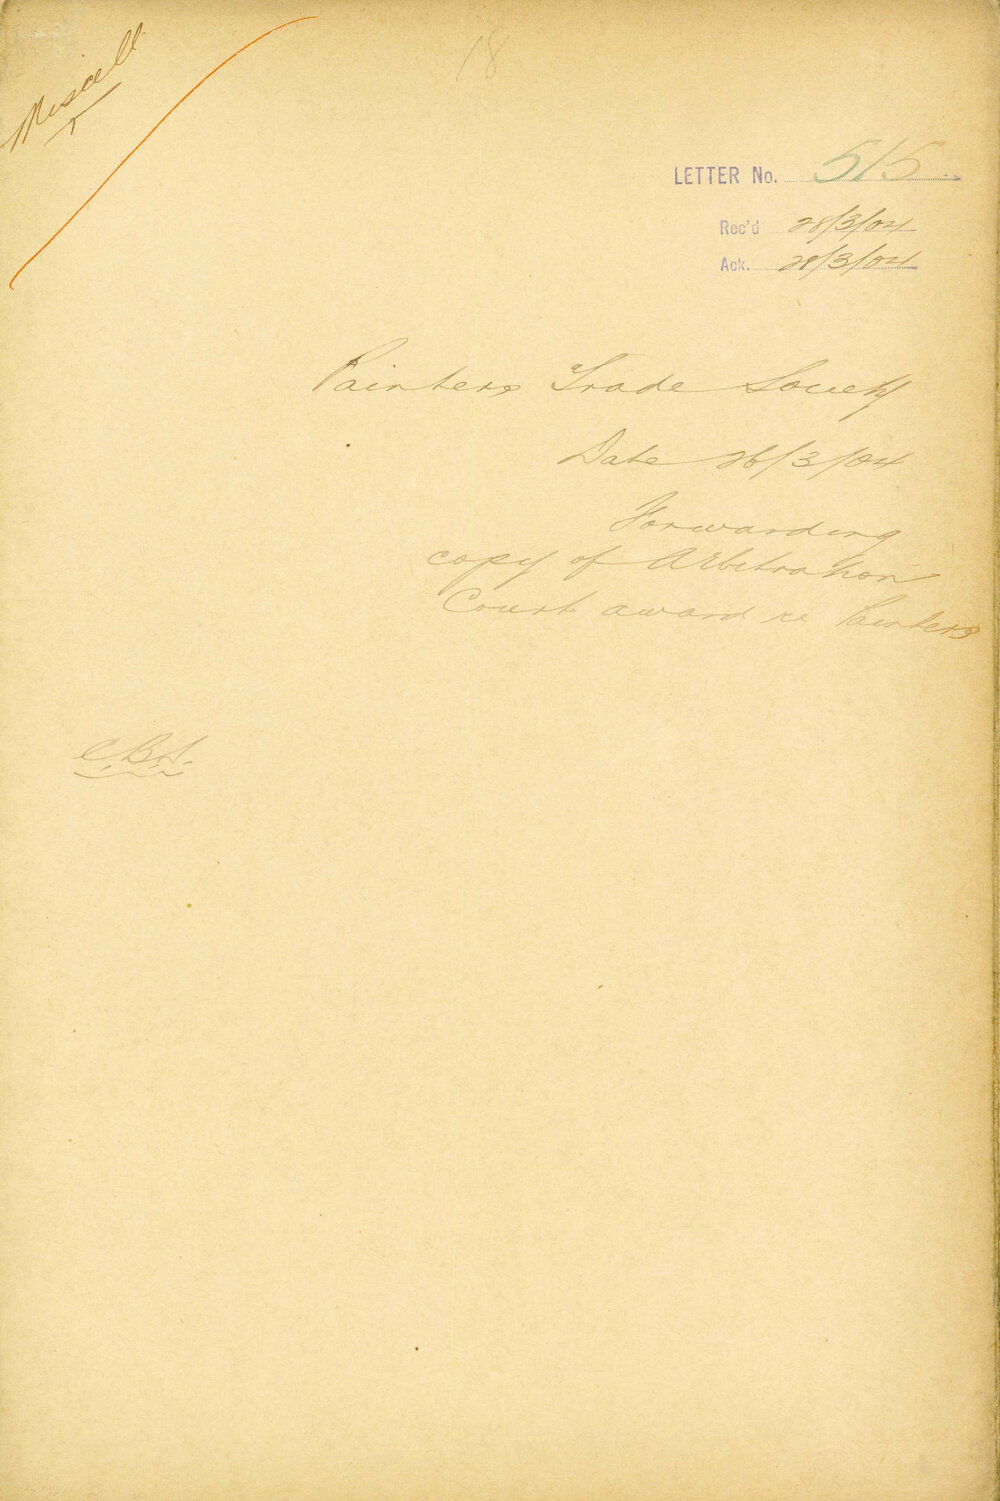 Miscell
18
LETTER No. 515
Rec'd 28/3/04
Ack. 28/3/04
Painters Trade Society
Date 26/3/04
Forwarding
copy of Arbitration
Court award re Painters